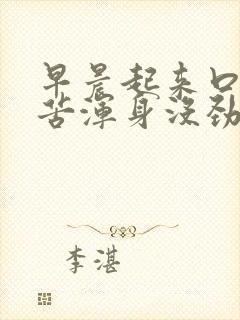 早晨起来口
苦浑身没劲
李湛